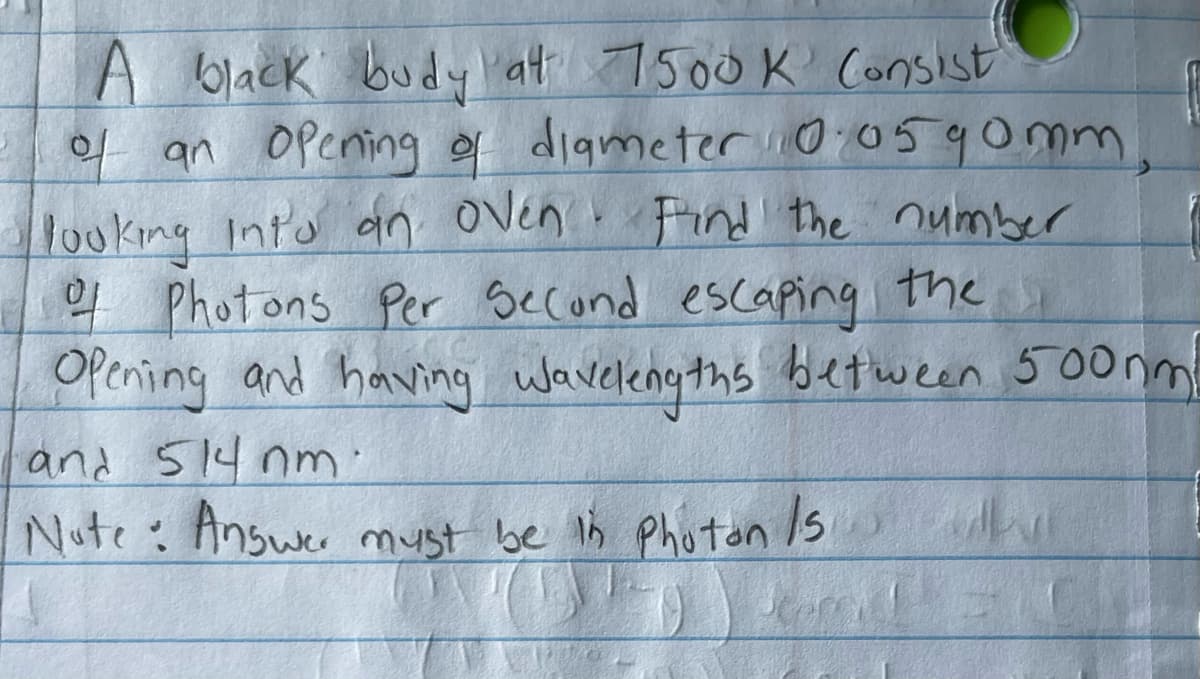 A black body at 7500 K Consist
of an opening of diameter 0.0590mm,
looking into an oven. Find the number
of photons per second escaping the
Opening and having wavelengths between 500nm
and 514 nm.
Note: Answer must be in photon/s